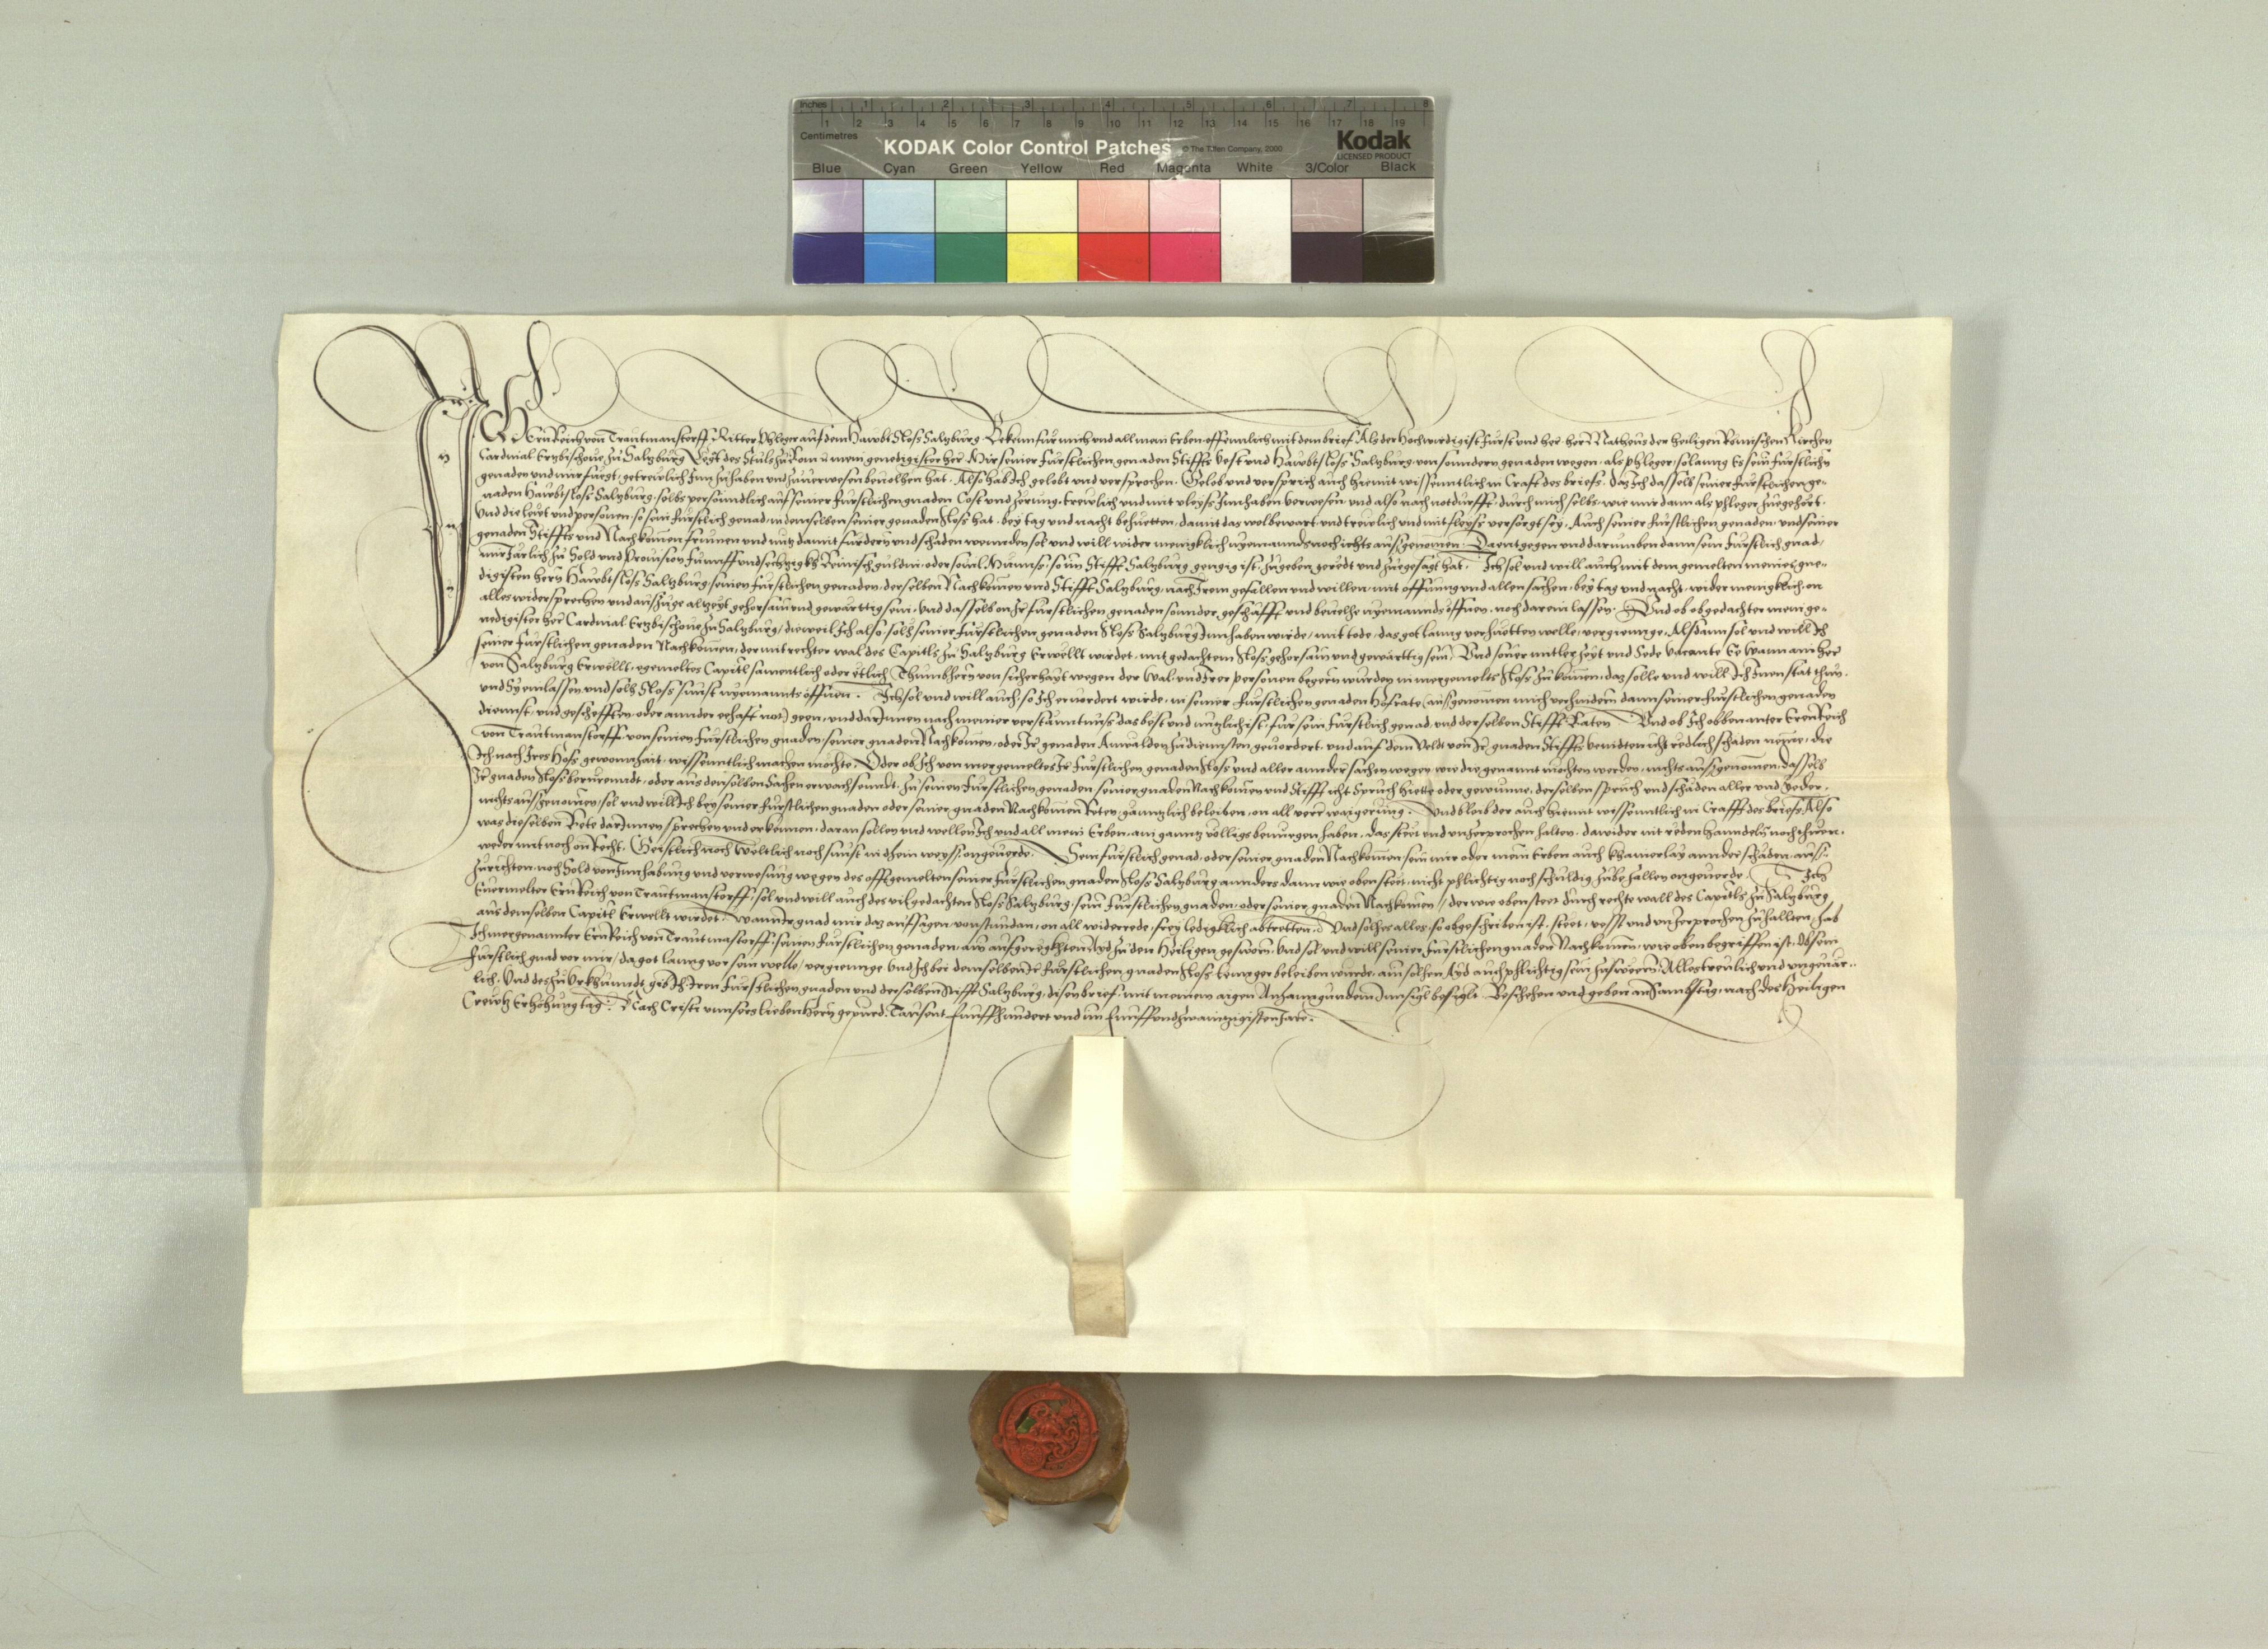 Inches 1 2 3 4 5 6 7 8
Centimetres 1 2 3 4 5 6 7 8 9 10 11 12 13 14 15 16 17 18 19
KODAK Color Control Patches © The Tiffen Company, 2000 Kodak
LICENSED PRODUCT
Blue Cyan Green Yellow Red Magenta White 3/Color Black
ICH Ernreich von Trautmanstorff Ritter Phleger auf dem Hawbt Sloss Salzburg Bekenn fur mich und all mein Erben offennlich mit dem brief Als der Hochwirdigist Furst und her her Matheus der heiligen Romischen Kirchen
Cardinal Ertzbischove zu Salzburg Legat des Stuls zu Rom mein genedigister her Mir seiner furstlichen genaden Stiffts Vest und Hawbtsloss Salzburg von sonndern genaden wegen als phleger solanng Es sein furstlich
genaden und mir fuegt getreulich Innzuhaben und zuverwesen bevolhen hat Also hab Ich gelobt und versprochen Gelob und versprich auch hiemit wissenntlich in Craft des briefs daz Ich das selb seiner furstlichen ge-
naden Hawbtsloss Salzburg selbs personndlich auf seiner furstlichen gnaden Cosst und Zerung trewlich und mit vleys Innhaben verwesen und also nach notdurfft durch mich selbs wie mir dann als phleger zuegehort
Und die lewt und personen so sein furstlich genad in demselben seiner genaden Sloss hat bey tag und nacht behuetten damit das wolbewart und trewlich und mit fleyss versorgt sey Auch seiner furstlichen genaden und seiner
genaden Stiffts und Nachkomen frumen und nutz damit furdern und schaden wennden sol und will wider menigklich nyemannds noch ichts ausgenomen Daentgegen und darumben dann sein furstlich gnad
mir Jarlich zu Sold und Provision Funnff und sechtzigkh Reinisch guldin oder sovil Munss so im Stifft Salzburg genngig ist zugeben geredt und zugesagt hat Ich sol und will auch mit dem gemelten meines gne-
digisten hern Hawbtsloss Salzburg seinen furstlichen genaden derselben Nachkomen und Stifft Salzburg nach Irem gefallen und willen mit offnung und allen sachen bey tag und nacht wider menigklich on
alles widersprechen und auszuge altzeyt gehorsam und gewarttig sein Und dasselb on Ir furstlichen genaden sonnder geschafft und bevelhe nyemannds offnen noch darein lassen Und ob obgedachter mein ge-
nedigister her Cardinal Ertzbischove zu Salzburg dieweil Ich also solh seiner furstlichen genaden Sloss Salzburg Innhaben wirde mit tode das got lanng verhuetten welle vergiennge Alsdann sol und will Ich
seiner furstlichen genaden Nachkomen der mit rechter wal des Capitls zu Salzburg Erwellt wirdet mit gedachtem Sloss gehorsam und gewarttig sein Und so ver mitler zeyt und Sede vacante Ee wann ain her
von Salzburg Erwellt egemeltes Capitl samentlich oder etlich Thumbhern von sicherhayt wegen der wal und Irer personen begern wurden in mergemelts Sloss zu komen daz solle und will Ich Inen stat thun
und Sy einlassen und solh Sloss sunst nyemannts offnen Ich sol und will auch so Ich ervordert wirde in seiner furstlichen genaden Hofrate ausgenomen mich verhindern dann seiner furstlichen genaden
diennst und gescheffte oder annder eehaft not geen und darInnen nach meiner verstanntnuss das best und nutzlichist fur sein furstlich genad und derselben Stifft Raten Und ob Ich obbenanter Ernreich
von Trautmanstorff von seinen furstlichen gnaden seiner gnaden Nachkomen oder Ir genaden Anwalden zu diennsten gevordert und auf dem Veldt von Ir gnaden Stiffts veindten icht redlich schaden neme die
Ich nach Ires Hofs gewonnhait wissenntlich machen mochte Oder ob Ich von mergemeltes Ir furstlichen genaden Sloss und aller annder sachen wegen wie die genannt mochten werden nichts ausgenomen dasselb
Ir gnaden Sloss beruerenndt oder aus denselben sachen erwachsenndt zu seinen furstlichen genaden seiner gnaden Nachkomen und Stifft icht Spruch hiette oder gewunne derselben spruch und schaden aller und Yeder
nichts ausgenomen sol und will Ich bey seiner furstlichen gnaden oder seiner gnaden Nachkomen Reten ganntzlich beleiben on all verrwaigerung Und bleib der auch hiemit wissenntlich in Crafft des briefs Also
was dieselben Rete darInnen sprechen und erkennen daran sollen und wellen Ich und all mein Erben am ganntz volligs benuegen haben das steet und unzerprochen halten dawider nit reden hanndeln noch thuen
weder mit noch on Recht Geistlich noch Weltlich noch sunst in dhein weyss ongeverde Sein furstlich genad oder seiner gnaden Nachkomen sein mir oder mein Erben auch khainerlay annder schaden auss-
zurichten noch Sold von Innhabung und verwesung wegen des offtgemelten seiner furstlichen gnaden Sloss Salzburg annders dann wie oben steet nicht phlichtig noch schuldig zubezallen ongeverde Ich
Eevermelter Ernreich von Trautmanstorff sol und will auch des vilgedachten Sloss Salzburg seinn furstlichen gnaden oder seiner gnaden Nachkomen der wie oben steet durch rechte wall des Capitls zu Salzburg
aus demselben Capitl Erwellt wirdet wann Ir gnad mir daz aufsagen von stundan on all widerrede frey ledigklich abtretten Und solhes alles so obgeschriben ist steet vesst und unzerprochen zuhallten hab
Ich mergenannter Ernreich von Trautmastorff seinen furstlichen genaden ain aufgeregkhten Ayd zu den Heiligen gesworn Und sol und will seiner furstlichen gnaden Nachkomen wie oben begriffen ist Ob sein
furstlich gnad vor mir da got lanng vor sein welle vergiennge Und Ich bei demselben Ir furstlichen gnaden Sloss lennger beleiben wurde ain solhen Ayd auch phlichtig sein zu swern Alles treulich und ungevar-
lich Und des zu Urkhunndt gib Ich Iren furstlichen gnaden und derselben Stifft Salzburg disen brief mit meinem aigen Anhanngundem Innsigl besiglt Beschehen und geben an Sambstag nach des Heiligen
Crewtz Erhohung tag Nach Cristi unnsers lieben hern gepurd Tausent Funffhundert und im Funffundzwaintzigisten Jare